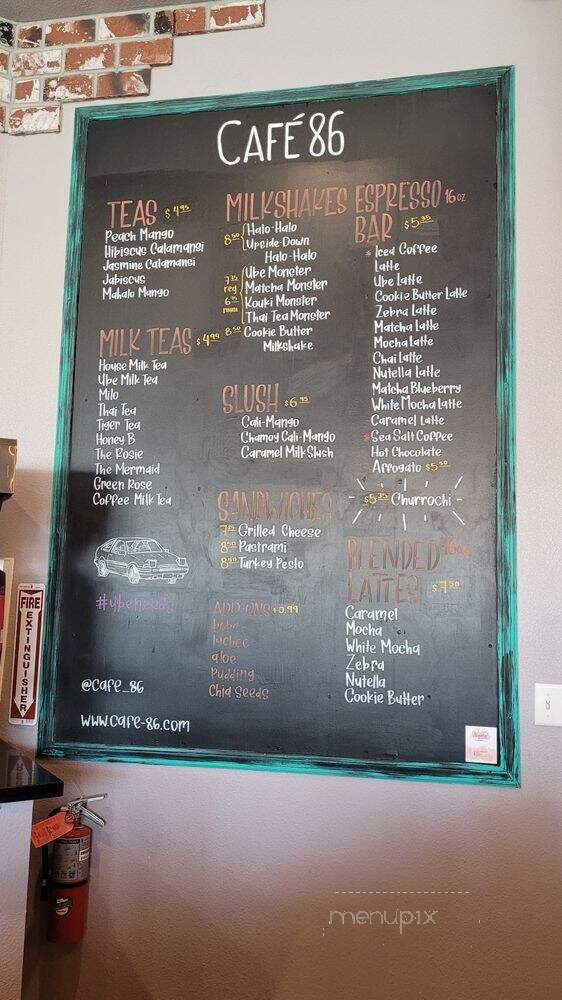 CAFÉ 86
TEAS $4.95
Peach Mango
Hibiscus Calamansi
Jasmine Calamansi
Jabiscus
Mahalo Mango
MILK TEAS $4.99
House Milk Tea
Ube Milk Tea
Milo
Thai Tea
Tiger Tea
Honey B
The Rosie
The Mermaid
Green Rose
Coffee Milk Tea
@cafe_86
www.cafe-86.com
MILKSHAKES
8.50 { Halo-Halo
Upside-Down
Halo-Halo
7.75 reg
6.75 mini
Ube Monster
Matcha Monster
Kouki Monster
Thai Tea Monster
8.50 Cookie Butter
Milkshake
SLUSH $6.95
Cali-Mango
Chamoy Cali-Mango
Caramel Milk Slush
SANDWICHES
Grilled Cheese
8.50 Pastrami
8.50 Turkey Pesto
ADD-ONS +0.99
boba
lychee
aloe
Pudding
Chia Seeds
ESPRESSO 16oz
BAR $5.35
* Iced Coffee
Latte
Ube Latte
Cookie Butter Latte
Zebra Latte
Matcha Latte
Mocha Latte
Chai Latte
Nutella Latte
Matcha Blueberry
White Mocha Latte
Caramel Latte
* Sea Salt Coffee
Hot Chocolate
Affogato $5.50
$5.35 Churrochi
BLENDED 16oz
LATTES $7.50
Caramel
Mocha
White Mocha
Zebra
Nutella
Cookie Butter
FIRE
EXTINGUISHER
menupix